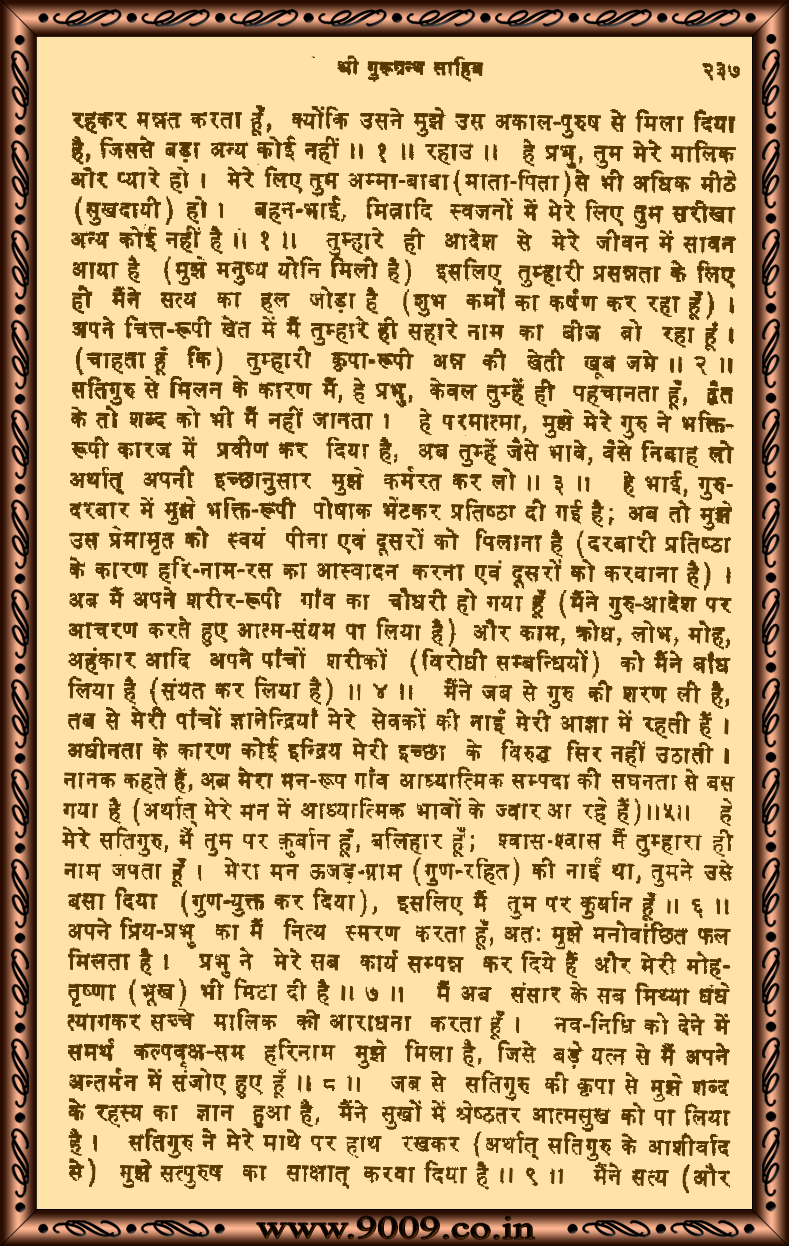 श्री गुरूग्रन्थ साहिब २३७
रहकर मन्नत करता हूँ, क्योंकि उसने मुझे उस अकाल-पुरुष से मिला दिया
है, जिससे बड़ा अन्य कोई नहीं ॥ १ ॥ रहाउ ॥ हे प्रभु, तुम मेरे मालिक
और प्यारे हो । मेरे लिए तुम अम्मा-बाबा (माता-पिता) से भी अधिक मीठे
(सुखदायी) हो । बहन-भाई, मित्रादि स्वजनों में मेरे लिए तुम सरीखा
अन्य कोई नहीं है ॥ १ ॥ तुम्हारे ही आदेश से मेरे जीवन में सावन
आया है (मुझे मनुष्य योनि मिली है) इसलिए तुम्हारी प्रसन्नता के लिए
ही मैंने सत्य का हल जोड़ा है (शुभ कर्मों का कर्षण कर रहा हूँ) ।
अपने चित्त-रूपी खेत में मैं तुम्हारे ही सहारे नाम का बीज बो रहा हूँ ।
(चाहता हूँ कि) तुम्हारी कृपा-रूपी अन्न की खेती खूब जमे ॥ २ ॥
सतिगुरु से मिलन के कारण मैं, हे प्रभु, केवल तुम्हें ही पहचानता हूँ, द्वैत
के तो शब्द को भी मैं नहीं जानता । हे परमात्मा, मुझे मेरे गुरु ने भक्ति-
रूपी कारज में प्रवीण कर दिया है, अब तुम्हें जैसे भावे, वैसे निबाह लो
अर्थात् अपनी इच्छानुसार मुझे कर्मरत कर लो ॥ ३ ॥ हे भाई, गुरु-
दरबार में मुझे भक्ति-रूपी पोषाक भेंटकर प्रतिष्ठा दी गई है; अब तो मुझे
उस प्रेमामृत को स्वयं पीना एवं दूसरों को पिलाना है (दरबारी प्रतिष्ठा
के कारण हरि-नाम-रस का आस्वादन करना एवं दूसरों को करवाना है) ।
अब मैं अपने शरीर-रूपी गाँव का चौधरी हो गया हूँ (मैंने गुरु-आदेश पर
आचरण करते हुए आत्म-संयम पा लिया है) और काम, क्रोध, लोभ, मोह,
अहंकार आदि अपने पाँचों शरीकों (विरोधी सम्बन्धियों) को मैंने बाँध
लिया है (संयत कर लिया है) ॥ ४ ॥ मैंने जब से गुरु की शरण ली है,
तब से मेरी पाँचों ज्ञानेन्द्रियाँ मेरे सेवकों की नाइँ मेरी आज्ञा में रहती हैं ।
अधीनता के कारण कोई इन्द्रिय मेरी इच्छा के विरुद्ध सिर नहीं उठाती ।
नानक कहते हैं, अब मेरा मन-रूप गाँव आध्यात्मिक सम्पदा की सघनता से बस
गया है (अर्थात् मेरे मन में आध्यात्मिक भावों के ज्वार आ रहे हैं)॥५॥ हे
मेरे सतिगुरु, मैं तुम पर क़ुर्बान हूँ, बलिहार हूँ; श्वास-श्वास मैं तुम्हारा ही
नाम जपता हूँ । मेरा मन ऊजड़-ग्राम (गुण-रहित) की नाईं था, तुमने उसे
बसा दिया (गुण-युक्त कर दिया), इसलिए मैं तुम पर क़ुर्बान हूँ ॥ ६ ॥
अपने प्रिय-प्रभु का मैं नित्य स्मरण करता हूँ, अतः मुझे मनोवांछित फल
मिलता है । प्रभु ने मेरे सब कार्य सम्पन्न कर दिये हैं और मेरी मोह-
तृष्णा (भूख) भी मिटा दी है ॥ ७ ॥ मैं अब संसार के सब मिथ्या धंधे
त्यागकर सच्चे मालिक की आराधना करता हूँ । नव-निधि को देने में
समर्थ कल्पवृक्ष-सम हरिनाम मुझे मिला है, जिसे बड़े यत्न से मैं अपने
अन्तर्मन में संजोए हुए हूँ ॥ ८ ॥ जब से सतिगुरु की कृपा से मुझे शब्द
के रहस्य का ज्ञान हुआ है, मैंने सुखों में श्रेष्ठतर आत्मसुख को पा लिया
है । सतिगुरु ने मेरे माथे पर हाथ रखकर (अर्थात् सतिगुरु के आशीर्वाद
से) मुझे सत्पुरुष का साक्षात् करवा दिया है ॥ ९ ॥ मैंने सत्य (और
www.9009.co.in